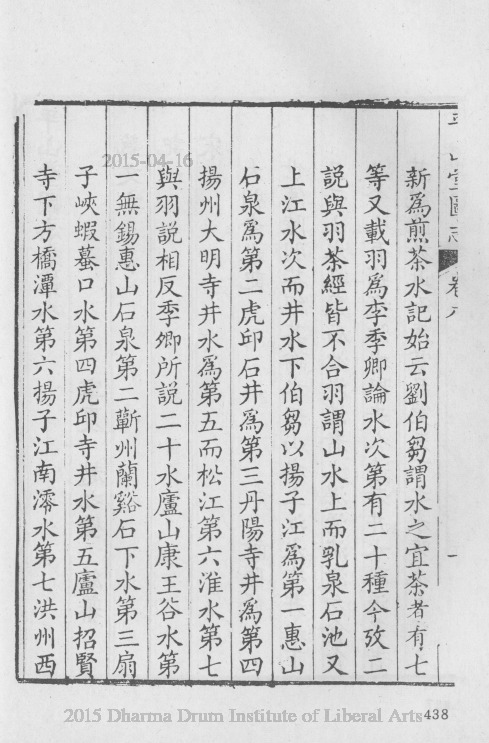 平山堂圖志 卷八 一
新爲煎茶水記始云劉伯芻謂水之宜茶者有七
等又載羽爲李季卿論水次第有二十種今攷二
説與羽茶經皆不合羽謂山水上而乳泉石池又
上江水次而井水下伯芻以揚子江爲第一惠山
石泉爲第二虎邱石井爲第三丹陽寺井爲第四
揚州大明寺井水爲第五而松江第六淮水第七
與羽説相反季卿所説二十水廬山康王谷水第
一無錫惠山石泉第二蘄州蘭谿石下水第三扇
子峽蝦蟇口水第四虎邱寺井水第五廬山招賢
寺下方橋潭水第六揚子江南澪水第七洪州西
2015-04-16
2015 Dharma Drum Institute of Liberal Arts
438